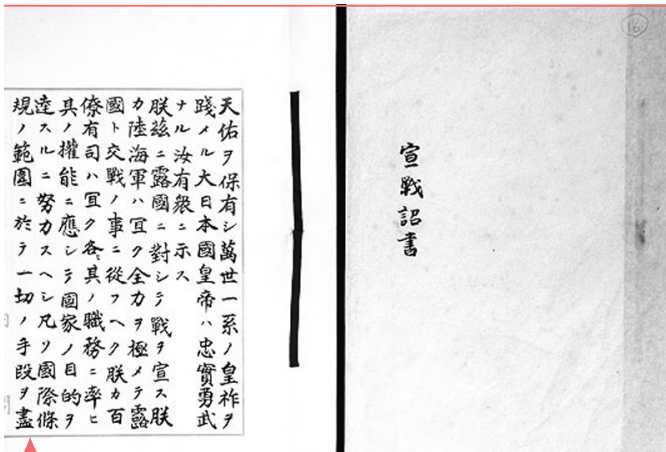 16
宣戰詔書
天佑ヲ保有シ萬世一系ノ皇祚ヲ
踐メル大日本國皇帝ハ忠實勇武
ナル汝有衆ニ示ス
朕玆ニ露國ニ對シテ戰ヲ宣ス朕
カ陸海軍ハ宜ク全力ヲ極メテ露
國ト交戰ノ事ニ從フヘク朕カ百
僚有司ハ宜ク各〻其ノ職務ニ率ヒ
其ノ權能ニ應シテ國家ノ目的ヲ
達スルニ努力スヘシ凡ソ國際條
規ノ範圍ニ於テ一切ノ手段ヲ盡